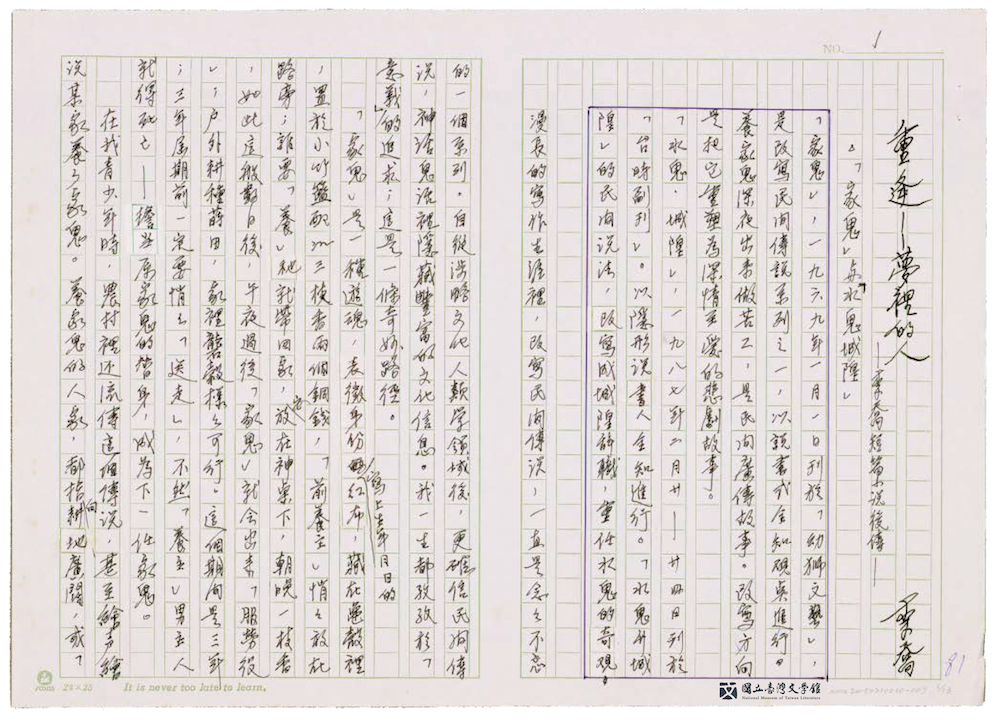 NO. 1
重逢—夢裡的人
—李喬短篇小說後傳—
李喬
△「家鬼」與「水鬼城隍」
「家鬼」,一九六九年一月一日刊於「幼獅文藝」,
是改寫民間傳說系列之一,以說書式全知觀點進行。
養家鬼深夜出來做苦工,是民間廣傳故事。改寫方向
是把它重塑為深情至愛的悲劇故事。
「水鬼.城隍」,一九八七年二月廿—廿四日刊於
「台時副刊」。以隱形說書人全知進行。「水鬼升城
隍」的民間說法,改寫成城隍辭職,重任水鬼的奇觀。
漫長的寫作生涯裡,改寫民間傳說,一直是念念不忘
的一個系列。自從涉略文化人類學領域後,更確信民間傳
說,神話鬼話裡隱藏豐富的文化信息。我一生都孜孜於「
意義」的追求;這是一條奇妙路徑。
「家鬼」是一種遊魂,表徵身份的紅布,寫上生年月日的,藏在龜殼裡
,置於小竹籃配以三枝香兩個銅錢,「前養主」悄悄放在
路旁;誰要「養」祂就帶回家,放在神桌下,朝晚一枝香
,如此這般數日後,午夜過後「家鬼」就会出來「服勞役
」;戶外耕種蒔田,家裡礱穀樣樣可行。這個期間是三年
;三年屆期前一定要悄悄「送走」,不然「養主」男主人
就得死亡—擔当原家鬼的替身,成為下一任家鬼。
在我青少年時,農村裡还流傳這個傳說,甚至繪声繪
說某家養了家鬼。養家鬼的人家,都指向耕地廣闊,或「
81
24×25
It is never too late to learn.
國立臺灣文學館
National Museum of Taiwan Literature